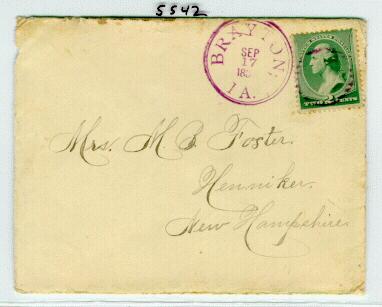 5542
BRAYTON,
SEP
17
188
IA.
TWO CENTS
Mrs. M. B. Foster.
Henniker.
New Hampshire